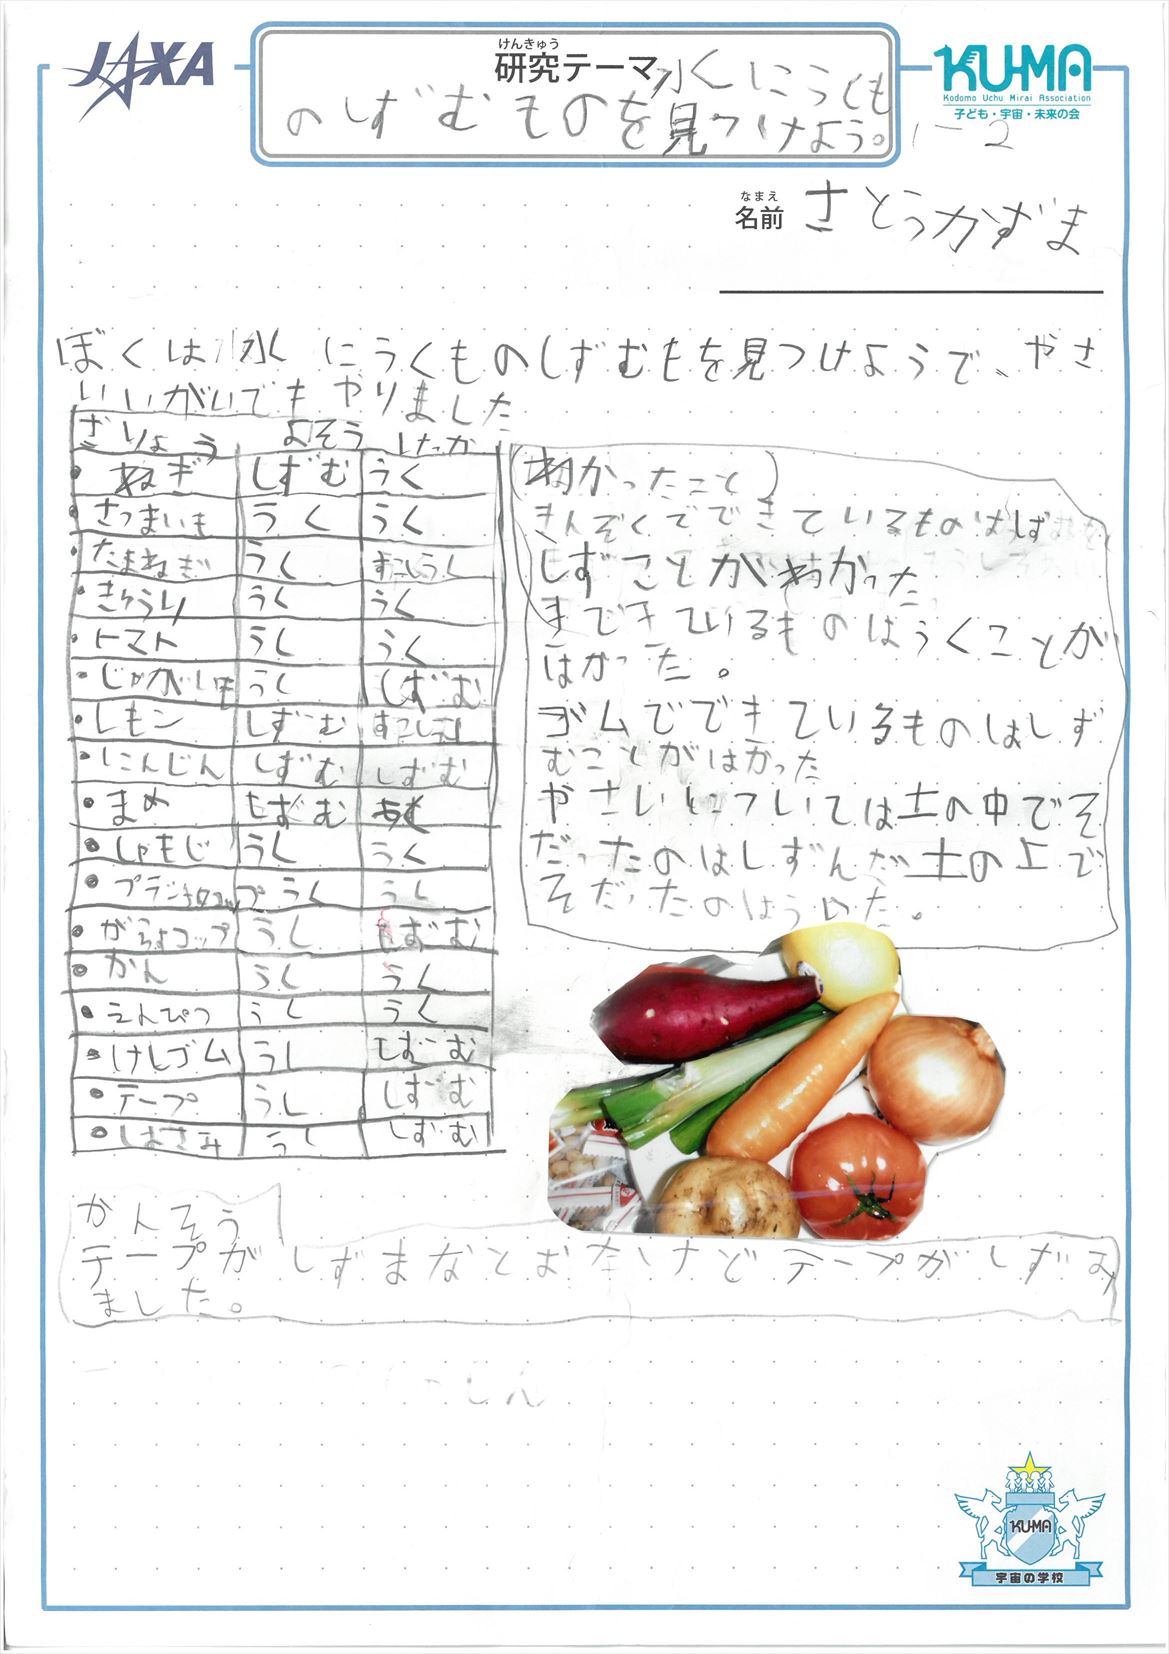 JAXA
けんきゅう
研究テーマ
水にうくも
のしずむものを見つけよう。
1-2
KU-MA
Kodomo Uchu Mirai Association
子ども・宇宙・未来の会
なまえ
名前 さとうかずま
ぼくは水にうくものしずむもを見つけようで、やさ
いいがいでもやりました
ざいりょう よそう けっか
・ねぎ しずむ うく
・さつまいも うく うく
・たまねぎ うく すこしうく
・きゅうり うく うく
・トマト うく うく
・じゃがいも うく しずむ
・レモン しずむ
・にんじん しずむ しずむ
・まめ しずむ
・しゃもじ うく うく
うく うく
うく しずむ
・かん うく うく
・えんぴつ うく うく
・けしゴム うく しずむ
・テープ うく しずむ
・はさみ うく しずむ
(わかったこと)
きんぞくでできているものは
しずことがわかった
きでできているものはうくことが
はかった。
ゴムでできているものはしず
むことがはかった
やさいについては土の中でそ
だったのはしずんだ土の上で
そだったのはういた。
かんそう
テープがしずまなとおたけどテープがしずみ
ました。
KU-MA
宇宙の学校